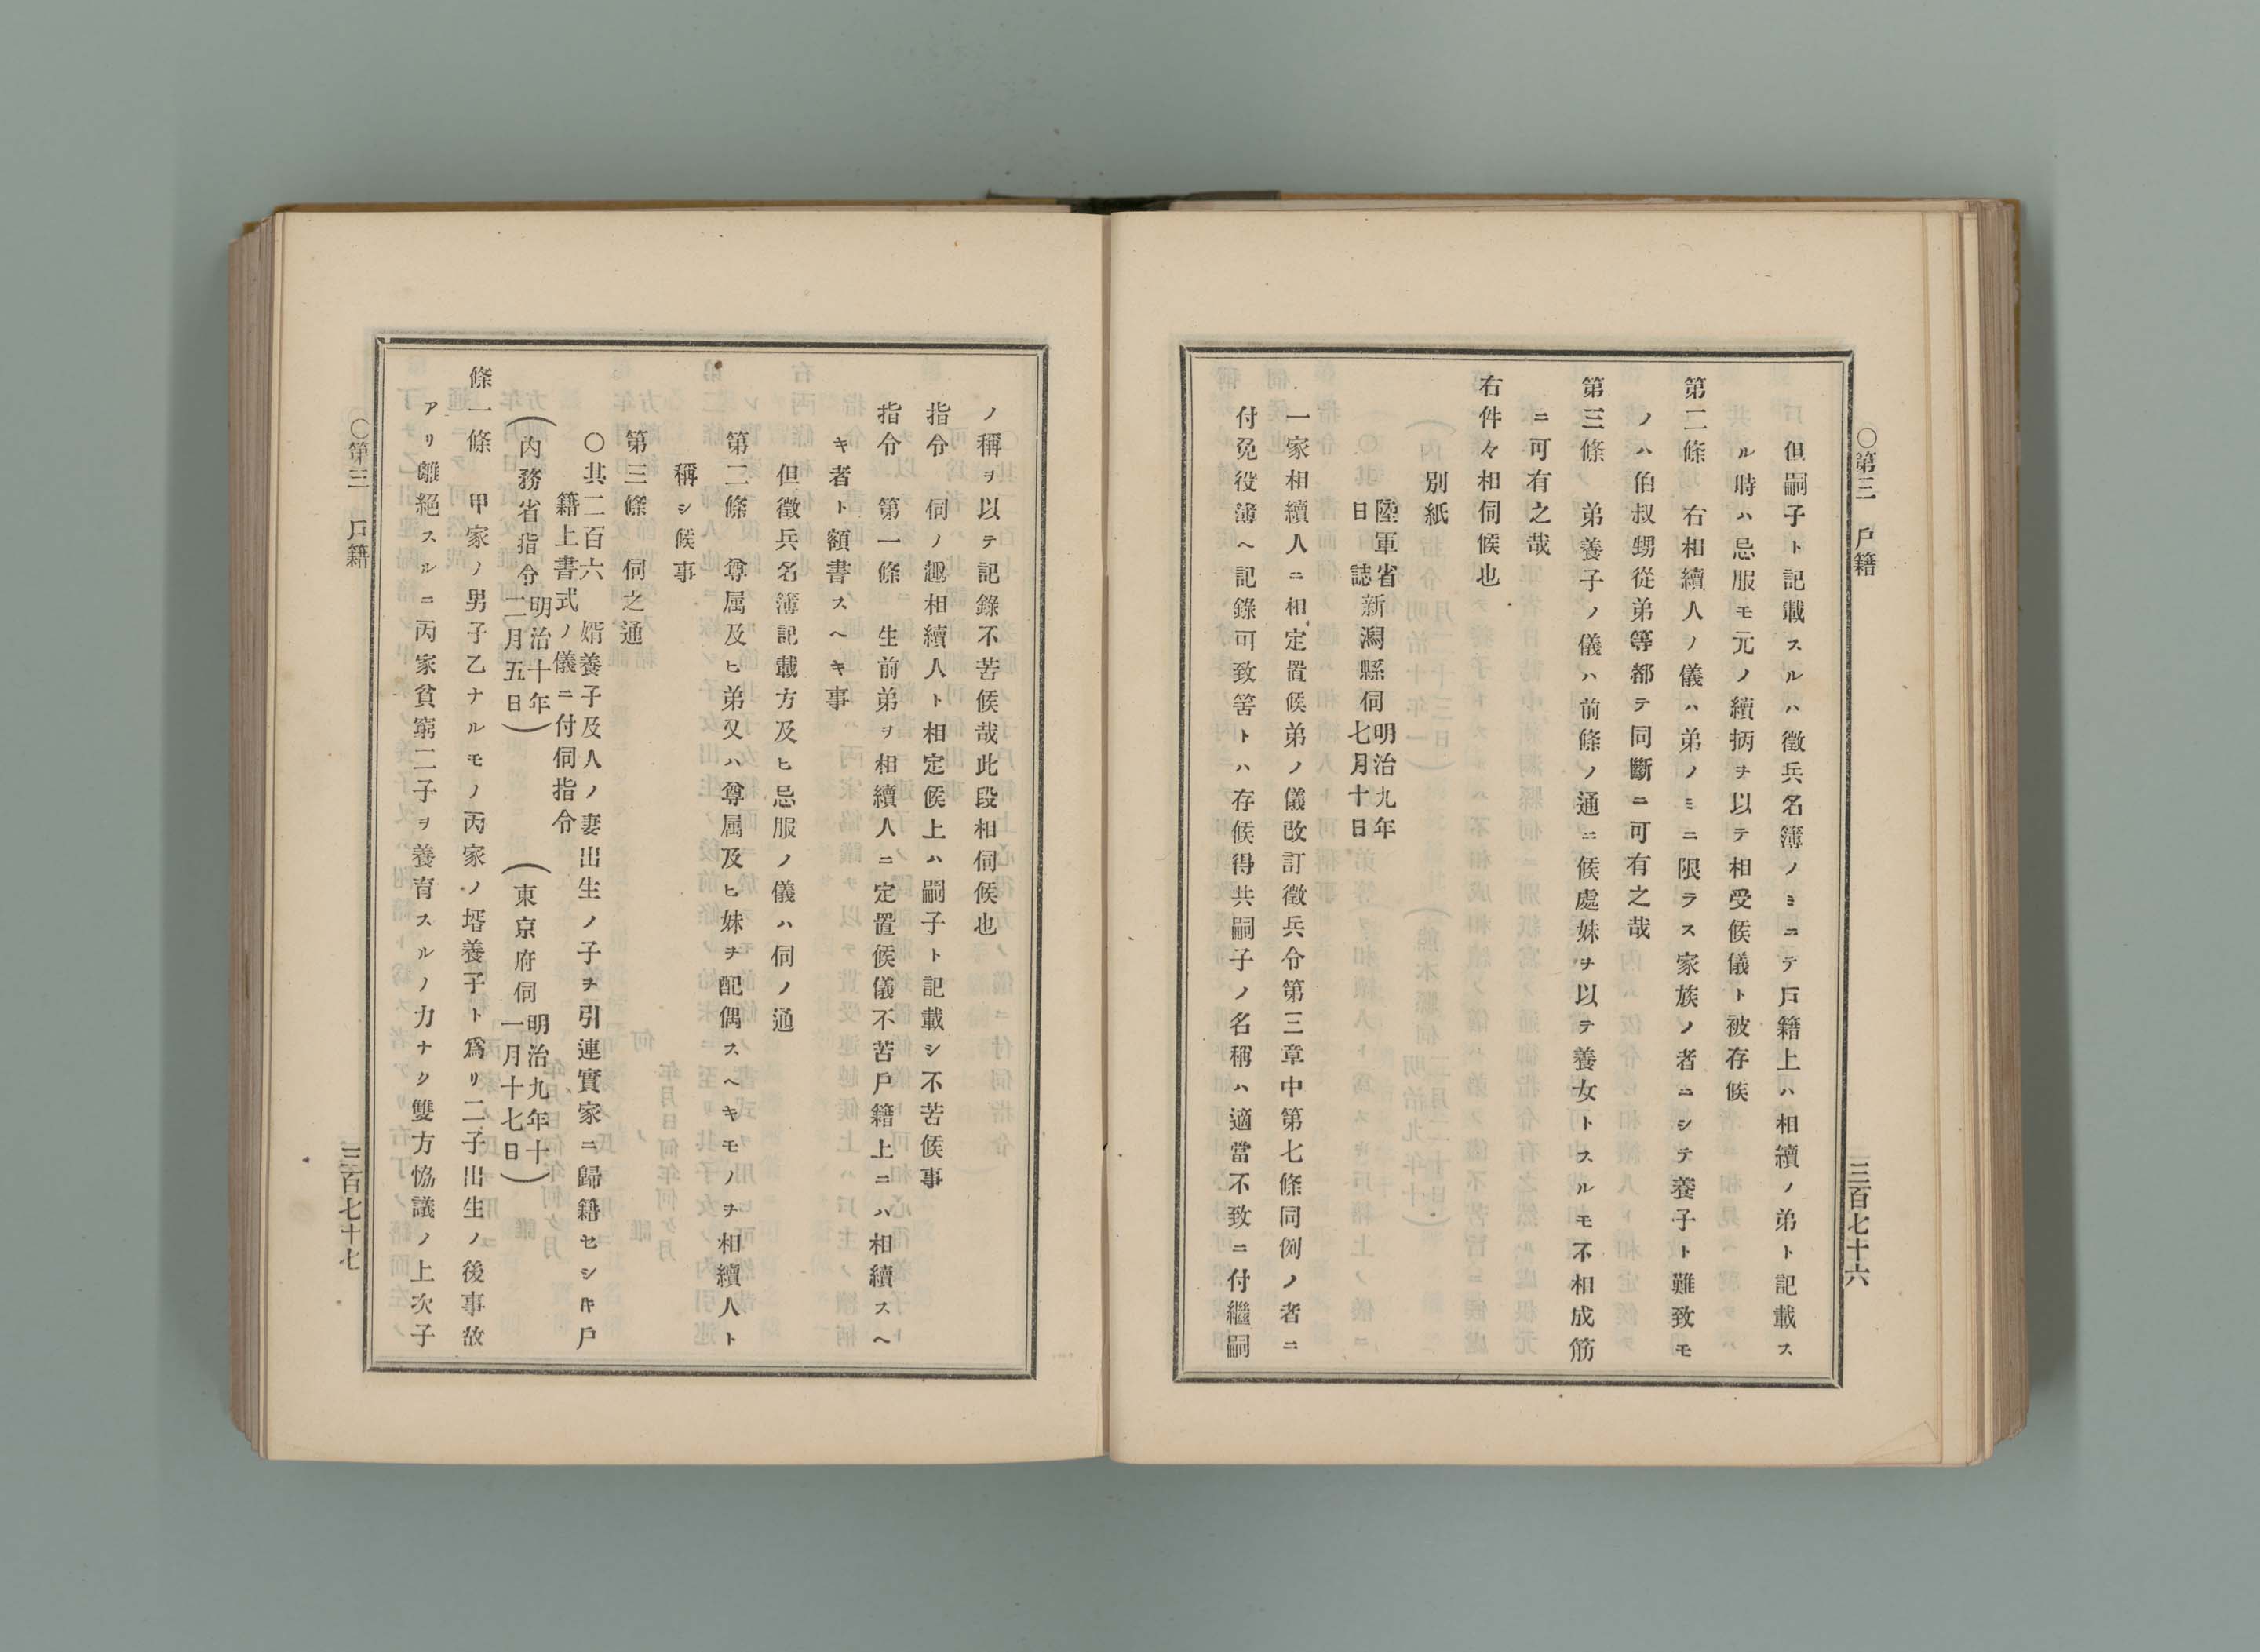 ○第三　戸籍
三百七十六
但嗣子ト記載スルハ徴兵名簿ノミニテ戸籍上ハ相續ノ弟ト記載ス
ル時ハ忌服モ元ノ續柄ヲ以テ相受候儀ト被存候
第二條　右相續人ノ儀ハ弟ノミニ限ラス家族ノ者ニシテ養子ト難致モ
ノハ伯叔甥從弟等都テ同斷ニ可有之哉
第三條　弟養子ノ儀ハ前條ノ通ニ候處妹ヲ以テ養女トスルモ不相成筋
ニ可有之哉
右件々相伺候也
別紙
陸軍省日誌　新潟縣伺　明治九年七月十日
一家相續人ニ相定置候弟ノ儀改訂徴兵令第三章中第七條同例ノ者ニ
付免役簿ヘ記錄可致筈トハ存候得共嗣子ノ名稱ハ適當不致ニ付繼嗣
ノ稱ヲ以テ記錄不苦候哉此段相伺候也
指令　伺ノ趣相續人ト相定候上ハ嗣子ト記載シ不苦候事
指令　第一條　生前弟ヲ相續人ニ定置候儀不苦戸籍上ニハ相續スヘ
キ者ト額書スヘキ事
但徴兵名簿記載方及ヒ忌服ノ儀ハ伺ノ通
第二條　尊属及ヒ弟又ハ尊属及ヒ妹ヲ配偶スヘキモノヲ相續人ト
稱シ候事
第三條　伺之通
○其二百六　婿養子及人ノ妻出生ノ子ヲ引連實家ニ歸籍セシ𪜈戸
籍上書式ノ儀ニ付伺指令
（內務省指令　明治十年二月五日）　（東京府伺　明治九年十一月十七日）
條一條　甲家ノ男子乙ナルモノ丙家ノ壻養子ト爲リ二子出生ノ後事故
アリ離絕スルニ丙家貧窮二子ヲ養育スルノ力ナク雙方恊議ノ上次子
○第三　戸籍
三百七十七